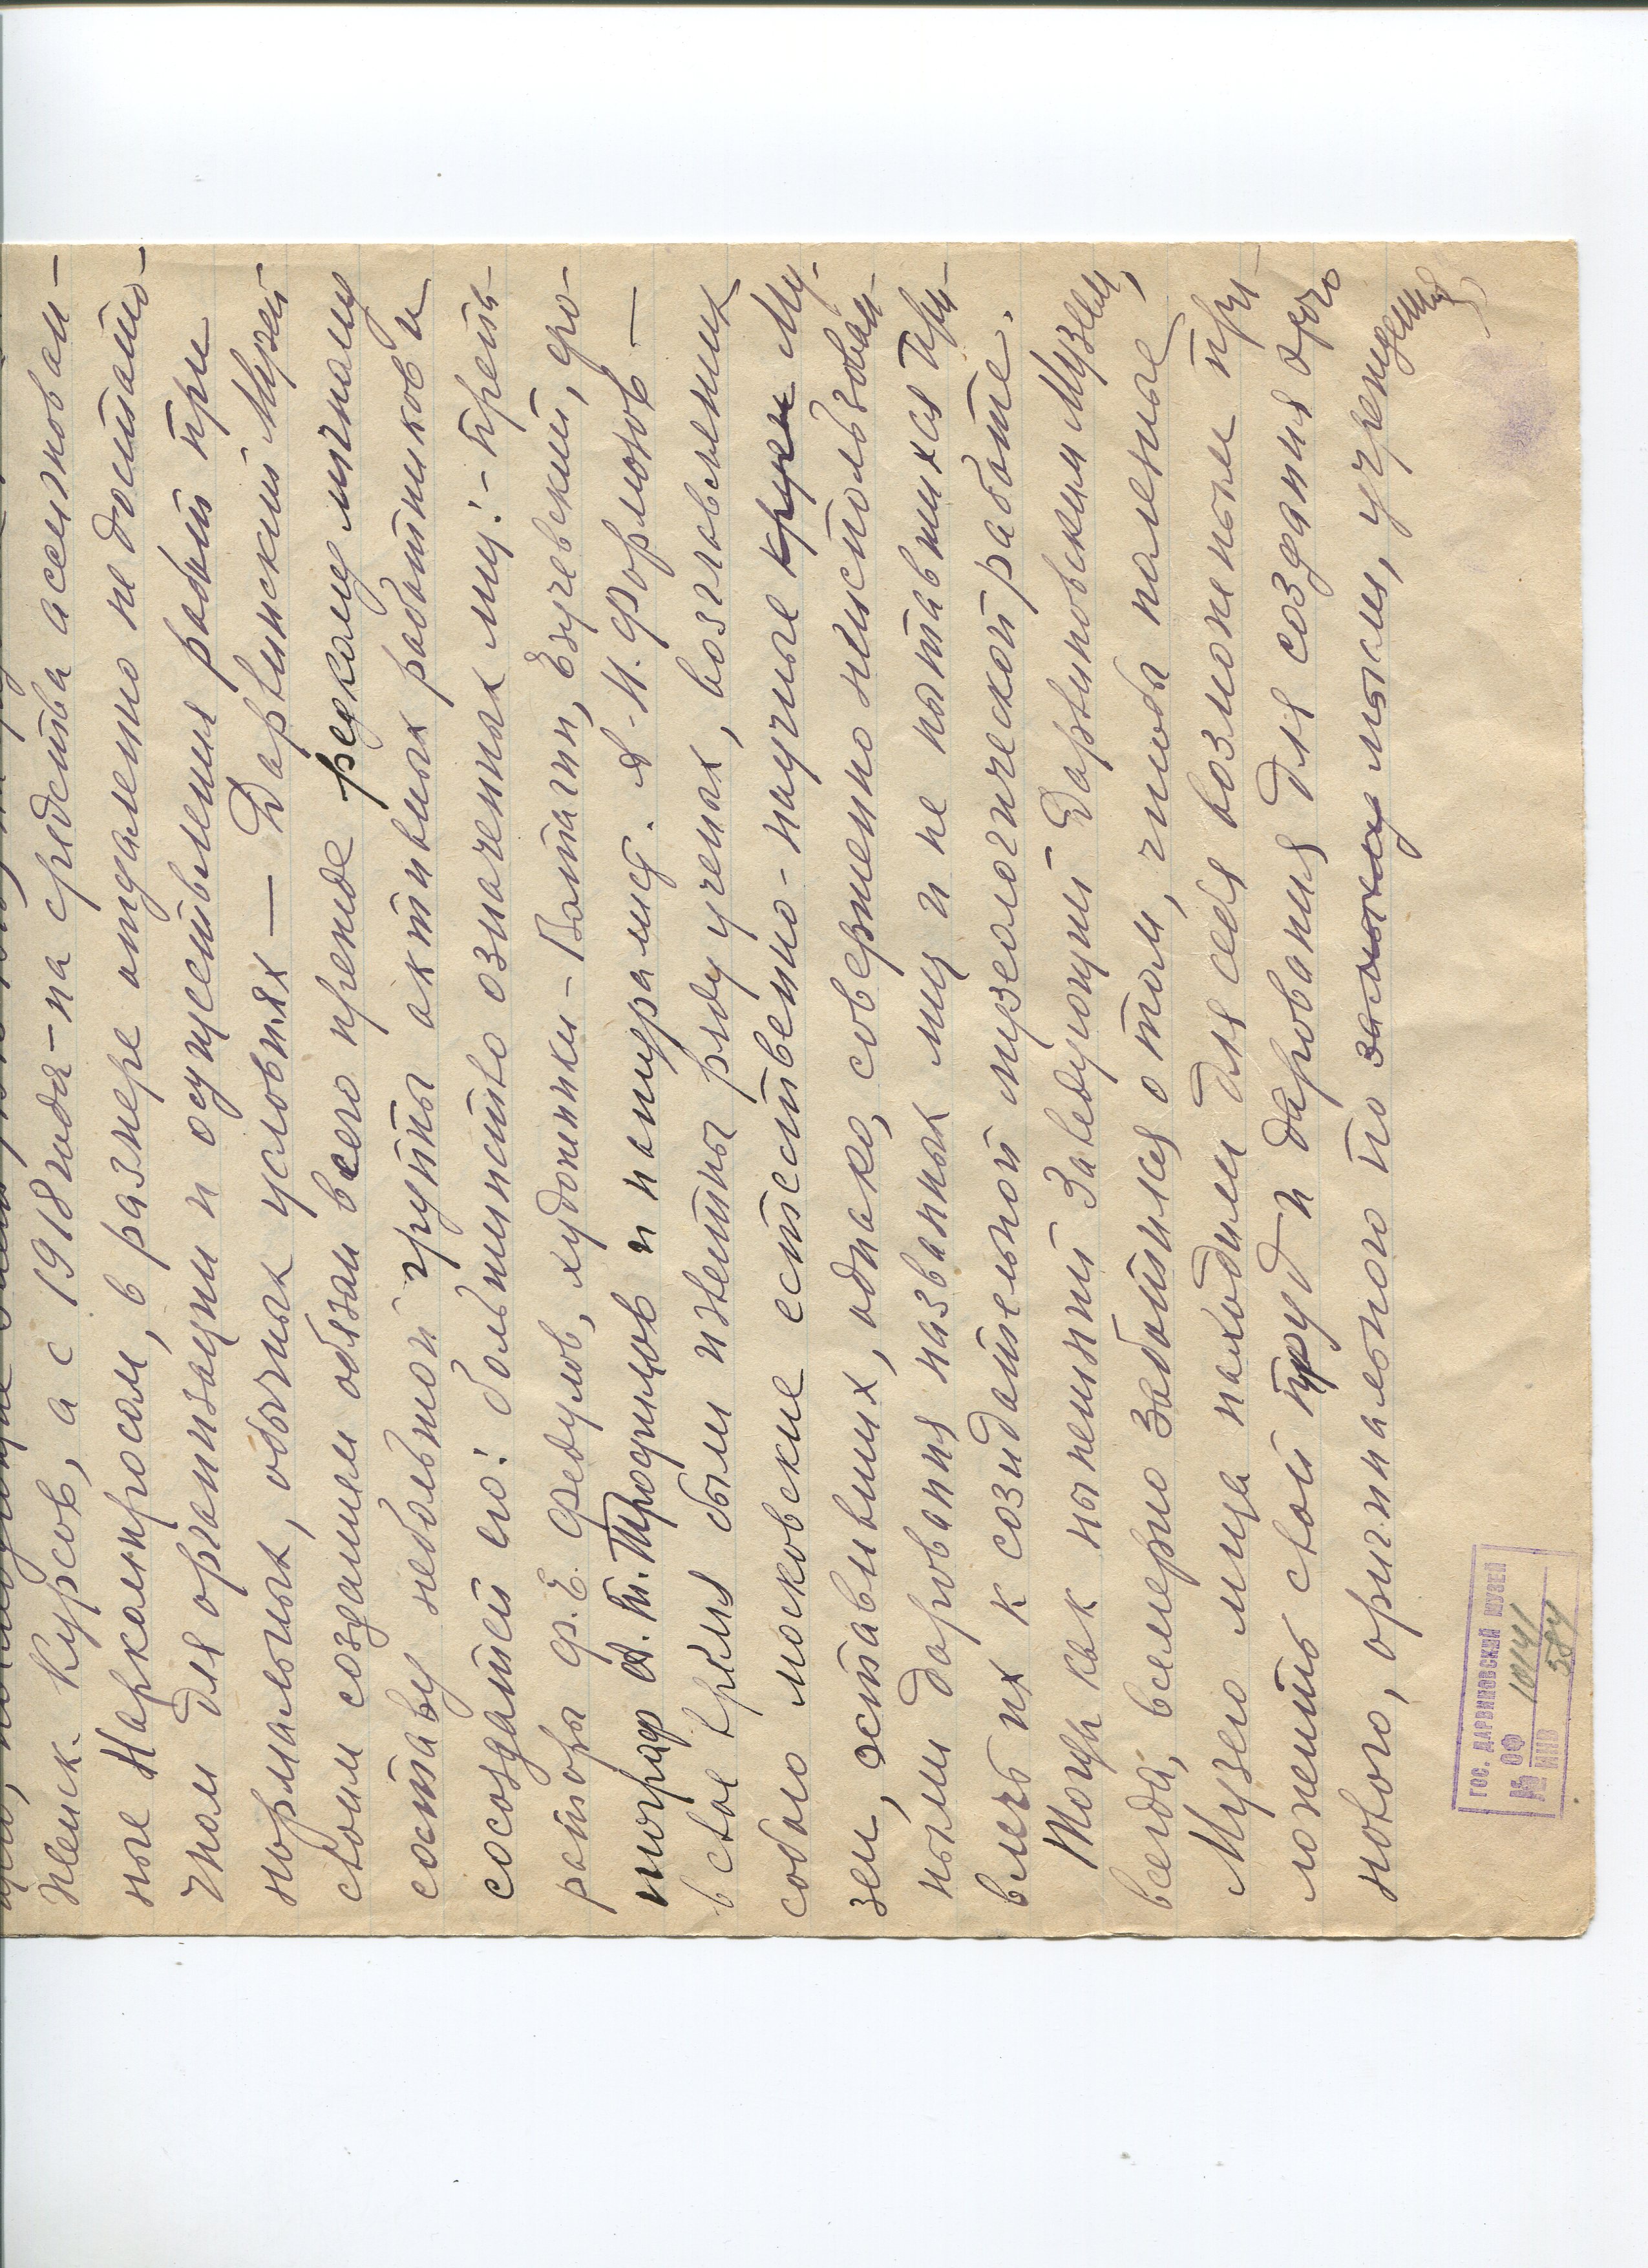 женск. курсов, а с 1918 года - на средства ассигнован-
ные Наркомпросом, в размере отдаленно не достаточ-
ном для организации и осуществления работ при
нормальных, обычных условиях — Дарвинский Музей
своим созданием обязан всего прежде редкому личному
составу небольшой группы активных работников и
создателей его: большинство означенных лиц: - препа-
раторы Ф. Е. Федулов, художники - Ватагин, Езучевский, фо-
тограф А. Т. Трофимов и натуралист. А. Н. Формозов —
в свое время были известны ряду ученых, возглавлявших
собою московские естественно-научные круги Му-
зеи, оставивших, однако, совершенно неиспользован-
ными дарования названных лиц и не пытавшихся при-
влечь их к созидательной музеологической работе.
Тогда как нынешний Заведующий Дарвиновским Музеем,
всегда, всемерно заботился о том, чтобы полезные
Музею лица находили для себя возможным при-
ложить свой труд и дарования для создания этого
нового, оригинального по замыслу мысли, учреждения
ГОС. ДАРВИНОВСКИЙ МУЗЕЙ
№ ОФ 10141
ИНВ 584